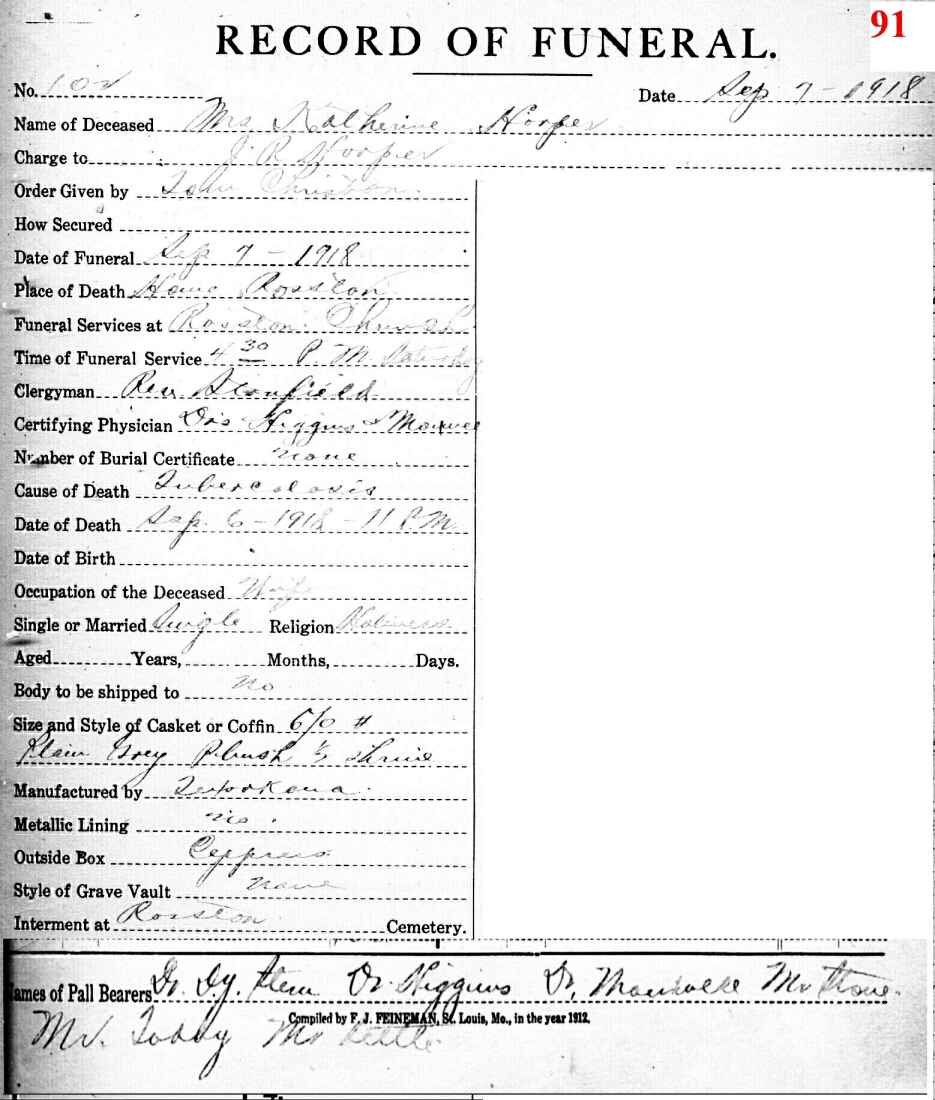 91
RECORD OF FUNERAL.
No. 102 Date Sep 7 - 1918
Name of Deceased Mrs Katherine Hooper
Charge to J R Hooper
Order Given by John
How Secured
Date of Funeral Sep 7 - 1918
Place of Death Home Rosston
Funeral Services at Rosston Church
Time of Funeral Service 4 30 P. M. Saturday
Clergyman Rev Stanfield
Certifying Physician Drs Higgins &
Number of Burial Certificate none
Cause of Death Tubercolosis
Date of Death Sep. 6 - 1918 - 11 P.M.
Date of Birth
Occupation of the Deceased Wife
Single or Married Single Religion Holiness
Aged Years, Months, Days.
Body to be shipped to no
Size and Style of Casket or Coffin 6/0 #
Plain Grey Plush
Manufactured by Texarkana
Metallic Lining no
Outside Box Cyppress
Style of Grave Vault none
Interment at Rosston Cemetery.
ames of Pall Bearers Dr. Dr. Higgins Dr. Mr
Compiled by F. J. FEINEMAN, St. Louis, Mo., in the year 1912.
Mr. Mr